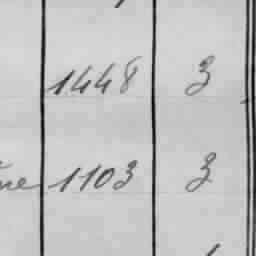 1448 3
1103 3